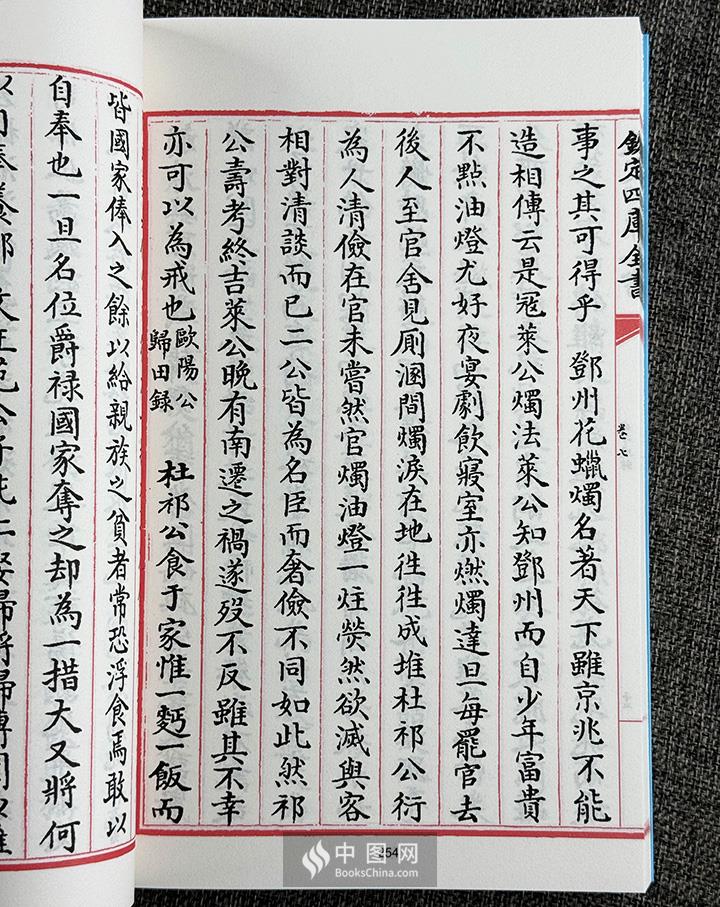 欽定四庫全書
卷七
事之其可得乎 鄧州花蠟燭名著天下雖京兆不能
造相傳云是冦萊公燭法萊公知鄧州而自少年富貴
不點油燈尤好夜宴劇飲寢室亦燃燭達旦每罷官去
後人至官舍見厠溷間燭淚在地徃徃成堆杜祁公衍
為人清儉在官未嘗然官燭油燈一炷熒然欲滅與客
相對清談而已二公皆為名臣而奢儉不同如此然祁
公壽考終吉萊公晚有南遷之禍遂歿不反雖其不幸
亦可以為戒也歐陽公歸田録 杜祁公食于家惟一麪一飯而
皆國家俸入之餘以給親族之貧者常恐浮食焉敢以
自奉也一旦名位爵禄國家奪之却為一措大又將何
254
中图网
BooksChina.com